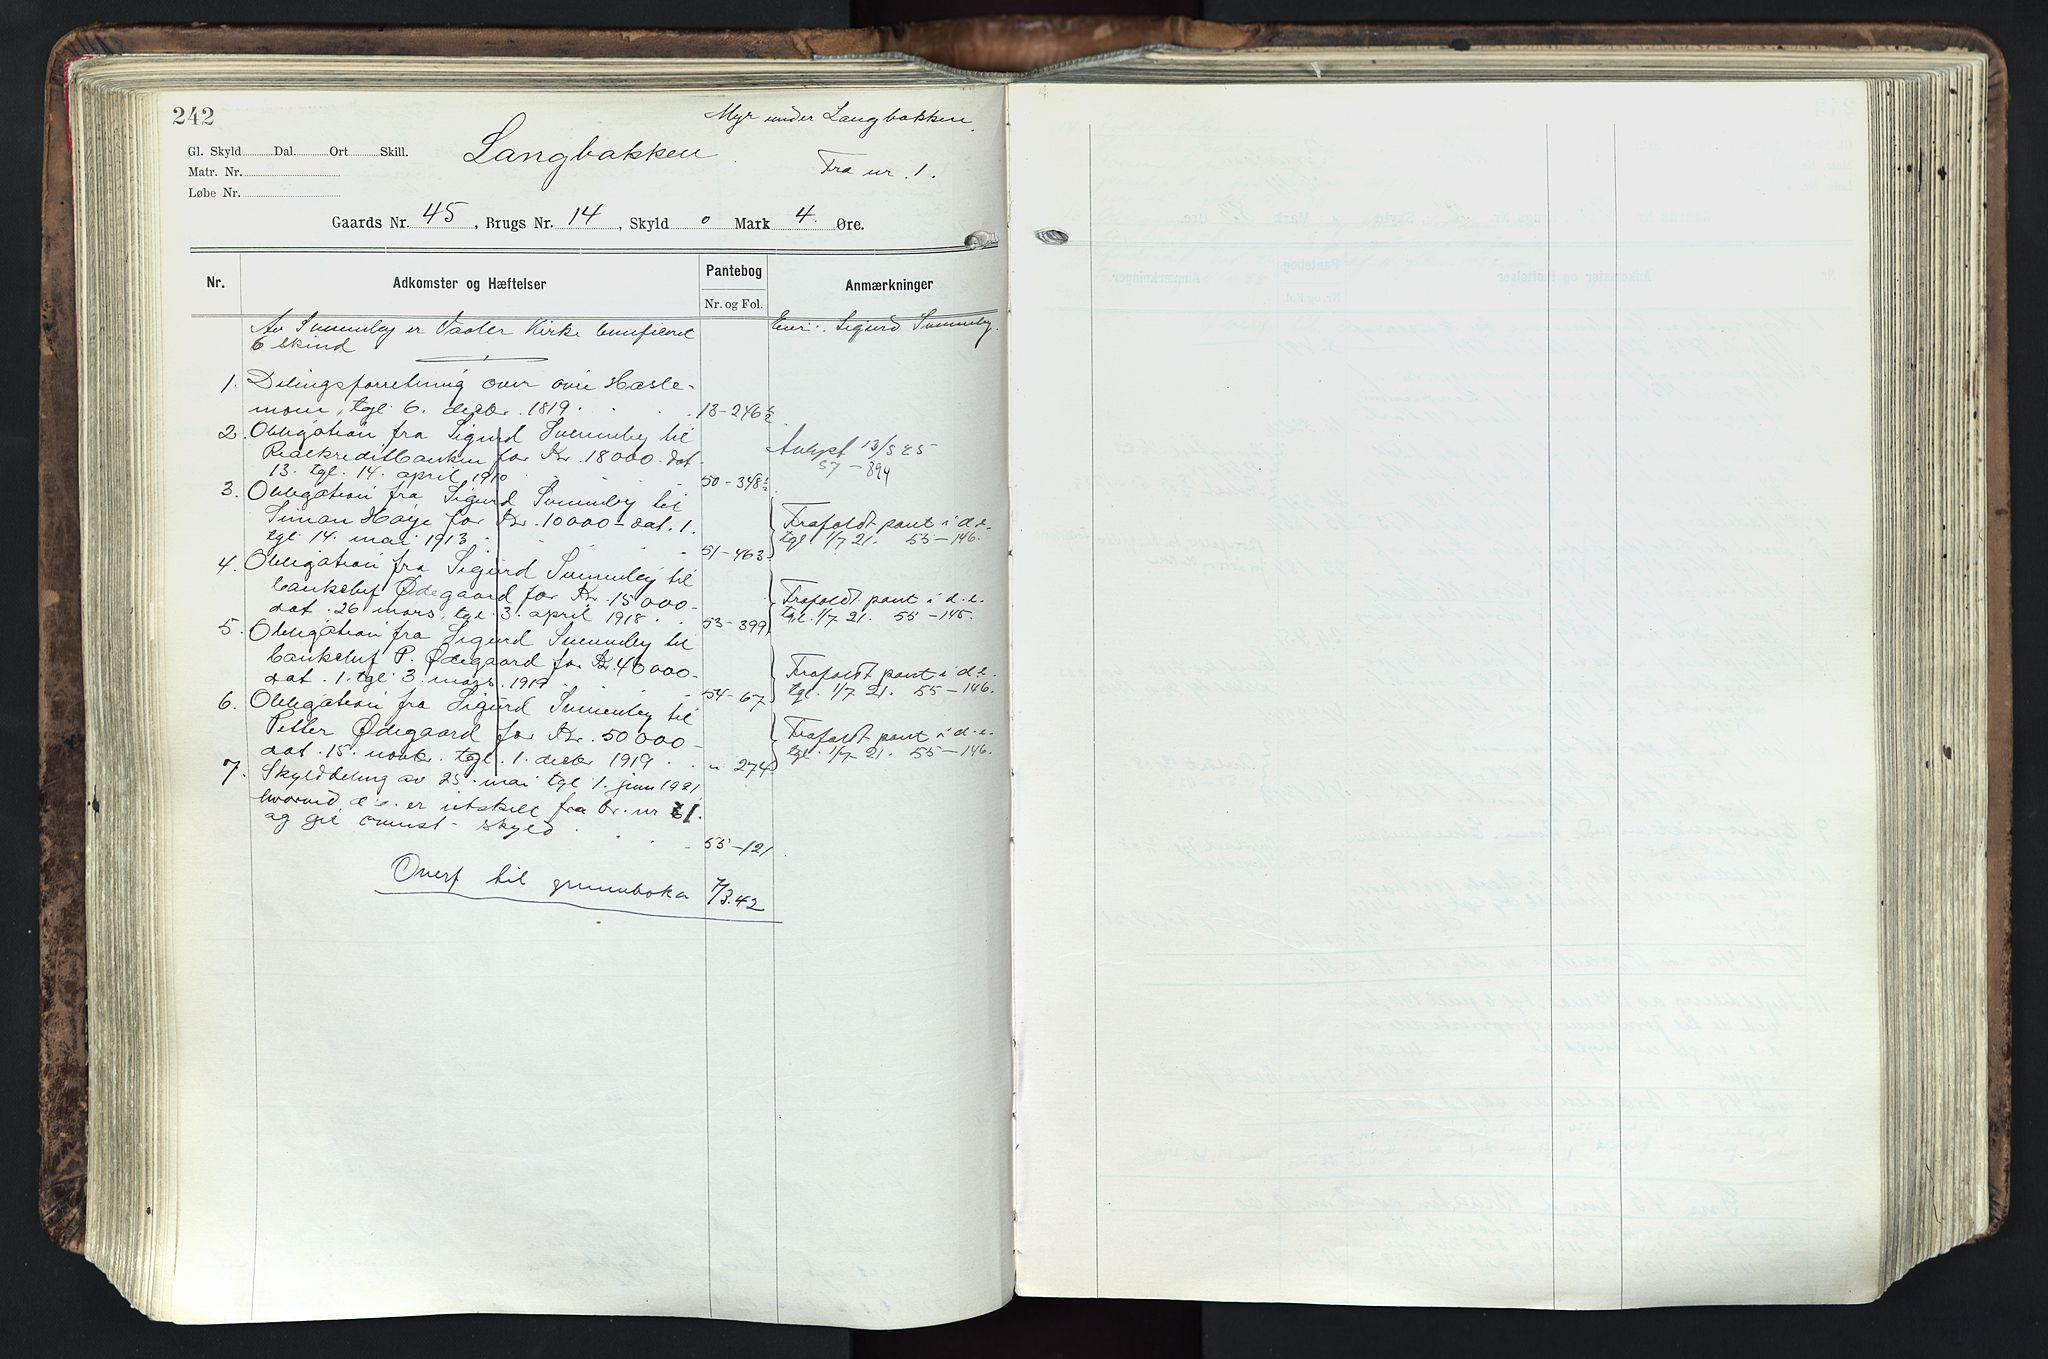 242
Myr under Langbakken.
Gl. Skyld Dal. Ort Skill.
Langbakken
Matr. Nr.
Fra nr. 1.
Løbe Nr.
Gaards Nr. 45, Brugs Nr. 14, Skyld 0 Mark 4. Øre.
Nr. Adkomster og Hæftelser Pantebog Nr. og Fol. Anmærkninger
Av Svenneby er Vaaler Kirke beneficeret Eier: Sigurd Svenneby.
6 skind
1. Delingsforretning over øvre Hasle-
moen, tgl. 6. decbr. 1819. 13-246 1/2
2. Obligation fra Sigurd Svenneby til Avlyst 13/5 25
Realkreditbanken for Kr. 18000. dat. 57-894
13. tgl. 14. april 1910 50-348 1/2
3. Obligation fra Sigurd Svenneby til
Simon Høye for Kr. 10000- dat. 1. Trafaldt pant i d.e.
tgl. 14. mai 1913 51-463 tgl. 1/7 21. 55-146.
4. Obligation fra Sigurd Svenneby til
bankchef Ødegaard for Kr. 15000- Trafaldt pant i d.e.
dat. 26 mars, tgl. 3. april 1918 53-399 tgl. 1/7 21. 55-145.
5. Obligation fra Sigurd Svenneby til
bankchef P. Ødegaard for Kr. 40000- Trafaldt pant i d.e.
dat. 1. tgl. 3. mars. 1919 54-67 tgl. 1/7 21. 55-146.
6. Obligation fra Sigurd Svenneby til
Petter Ødegaard for Kr. 50000- Trafaldt pant i d.e.
dat. 15. novbr. tgl. 1. decbr 1919 " 274 tgl. 1/7 21. 55-146.
7. Skylddeling av 25. mai tgl 1. juni 1921
hvorved d.e. er utskilt fra br. nr 1.
og git ovenst. skyld 55-121
Overf til grunnboka 7/3.42